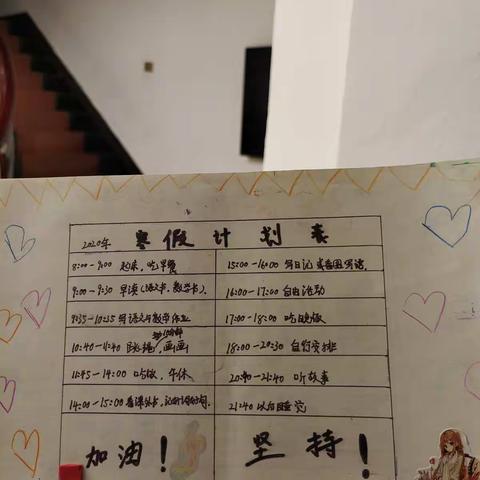 2020年 寒假计划表
8:00-9:00 起床,吃早餐
15:00-16:00 写日记或看图写话.
9:00-9:30 早读(语文书,数学书).
16:00-17:00 自由活动
9:35-10:25 写语文与数学作业
17:00-18:00 吃晚饭
10:40-11:40 跳绳, 画画
18:00-20:30 自行安排
11:45-14:00 吃饭,午休
20:40-21:40 听故事
14:00-15:00 看课外书,
21:40 以后睡觉
加油!
坚持!